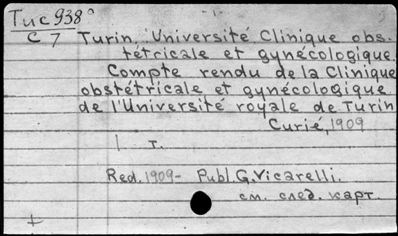 Tuc938
C 7 Turin. Université Clinique obs-
tétricale et gynécologique.
Compte rendu de la Clinique
obstétricale et gynécologique
de l'Université royale de Turin
Curié, 1909
1 т.
Red. 1909- Publ. G. Vicarelli.
см. след. карт.
+